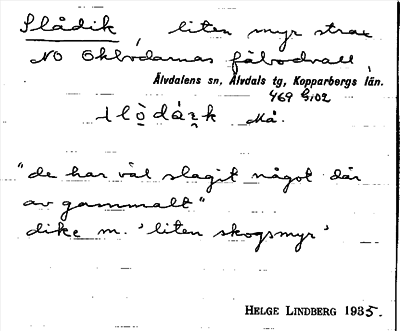 Slådik, liten myr strax
NO Eklodarnas fäbodvall,
Älvdalens sn, Älvdals tg, Kopparbergs län.
469 G;02
Må.
"de har väl slagit något där
av gammalt"
dike m. 'liten skogsmyr'
HELGE LINDBERG 1935.